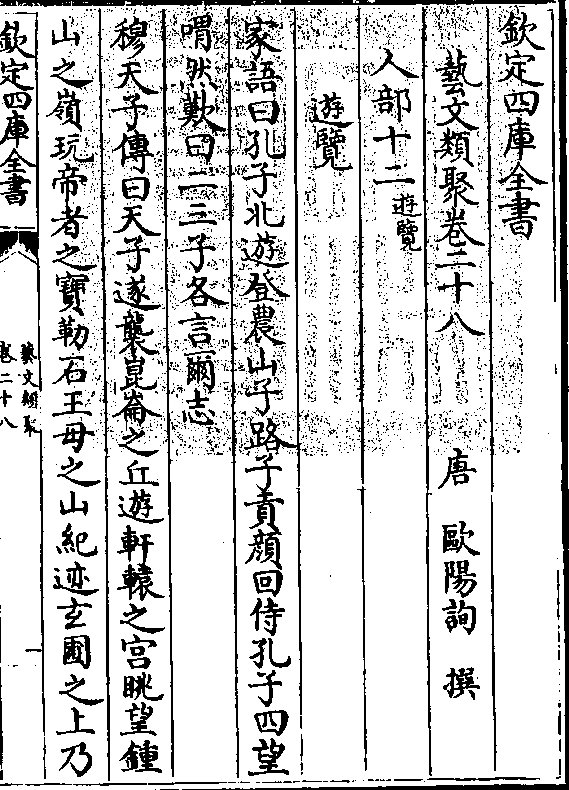 欽定四庫全書
藝文類聚卷二十八
唐 歐陽詢 撰
人部十二 遊覽
遊覽
家語曰孔子北遊登農山子路子貢顏回侍孔子四望
喟然歎曰二三子各言爾志
穆天子傳曰天子遂襲崑崙之丘遊軒轅之宮眺望鍾
山之嶺玩帝者之寶勒石王母之山紀迹玄圃之上乃
欽定四庫全書
藝文類聚
卷二十八
一